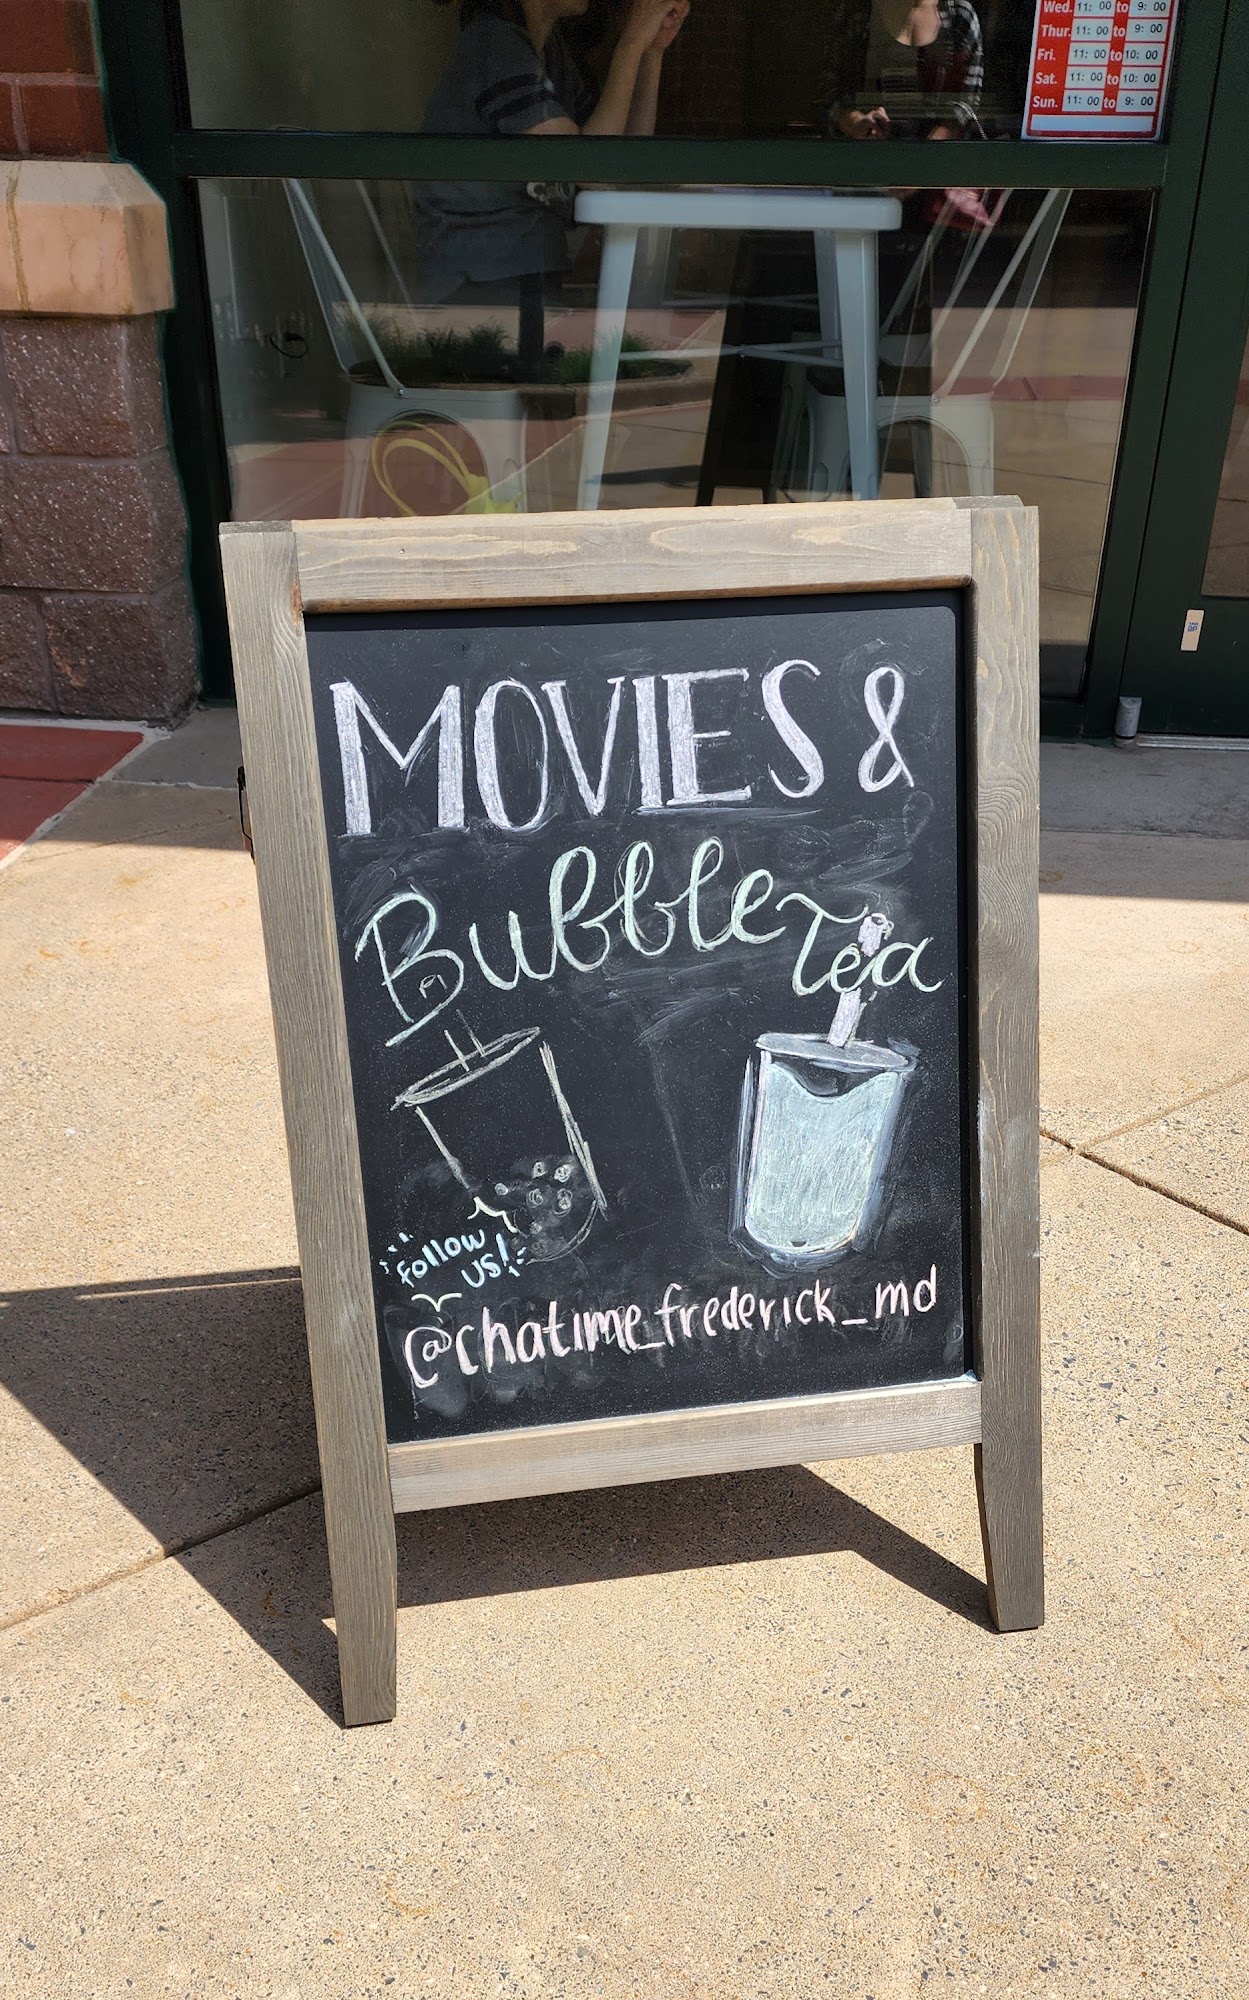 Wed. 11: 00 to 9: 00
Thur. 11: 00 to 9: 00
Fri. 11: 00 to 10: 00
Sat. 11: 00 to 10: 00
Sun. 11: 00 to 9: 00
MOVIES &
Bubble Tea
follow
US!
@chatime_frederick_md